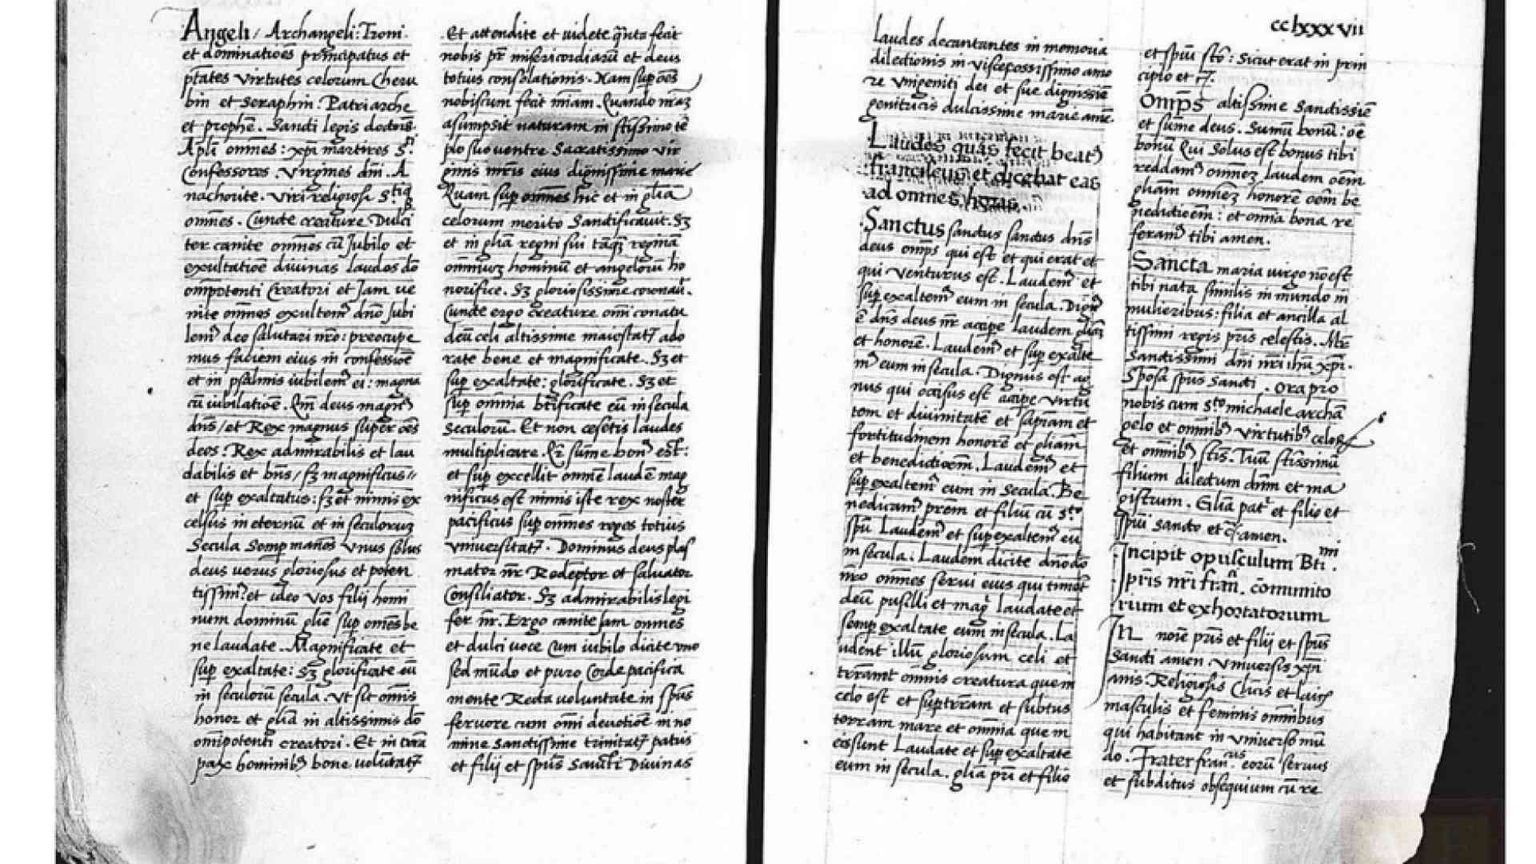 Angeli / Archangeli: Troni.
et dominatioēs prīncipatus et
ptātes virtutes celorum Cheru
bin et Seraphin: Patriarche
et prophē. Sancti legis doctrīs.
Apłi omnes: xpī martires S.ti
Confessores. Virgīnes dnī. A
nachorite. Viri religiosi S.ti q
omnes. Cuncte creature Dulci
ter canite omnes cū Jubilo et
exultatioē diuinas laudes dō
ompotenti Creatori et Jam ue
nite omnes exultemꝰ dnō Jubi
lemꝰ deo salutari nrō: preoccupe
mus faciem eius in confessiōe
et in psalmis iubilemꝰ ei: magna
cū iubilatiōe. Qm̄ deus magnꝰ
dnś / et Rex magnus super oēs
deos: Rex admirabilis et lau
dabilis et bnś / sʒ magnificus //
et suꝑ exaltatus: sʒ et nimis ex
celsus in eternū et in seculorum
Secula Semꝑ manēs vnus solus
deus uerus gloriosus et poten
tissimꝰ et ideo vos filij homi
num dominū gliē suꝑ omēs be
ne laudate. Magnificate et
suꝑ exaltate: Sʒ glorificate eū
in seculorū secula. Vt sit omnis
honor et gliā in altissimis dō
omipotenti creatori. Et in terra
pax hominibꝰ bone voluntatꝭ
.Et attendite et uidete qnta fecit
nobis pr̄ misericordiarū et deus
totius consolationis. Nam suꝑ oēs
nobiscum fecit mīam. Quando nrāʒ
asumpsit naturam in stīssimo tē
plo suo ventre Sacratissimo vir
ginis mrīs eius dignissime marie
Quam suꝑ omnes hic et in gliā
celorum merito Sanctificauit. Sʒ
et in gliā regni sui tāqʒ reginā
omniuʒ hominū et angelorū ho
norifice. Sʒ gloriosissime coronaū.
Cuncte ergo creature omni conatu
deū celi altissime maiestatꝭ ado
rate bene et magnificate. Sʒ et
suꝑ exaltate: glorificate. Sʒ et
suꝑ omnia btīficate eū in secula
Seculorū. Et non cesetis laudes
multiplicare. Qꝛ sume bonꝰ est:
et suꝑ excellit omnē laudē mag
nificus est nimis iste rex noster
pacificus suꝑ omnes reges totius
vniuersitatꝭ. Dominus deus plas
mator nr̄ Redeptor et saluator
Consiliator. Sʒ admirabilis legi
fer nr̄. Ergo canite Jam omnes
et dulci voce cum iubilo dicite vno
sed mūdo et puro corde pacifica
mente Recta voluntate in spūs
feruore cum omī deuotiōe in no
mine Sanctissime trinitatꝭ patris
et filij et spūs Sancti Diuinas
cclxxxvii
laudes decantantes in memoria
dilectionis in viscerossissimo amo
re vnigeniti dei et sue dignissiē
genitricis dulcissime marie amē.
Laudes quas fecit beatꝰ
franciscus et dicebat eas
ad omnes horas.
Sanctus sanctus sanctus dn̄s
deus omps qui est et qui erat et
qui venturus est. Laudemꝰ et
suꝑ exaltemꝰ eum in secula. Dignꝰ
ē dn̄s deus nr̄ accipe laudem gliāʒ
et honorē. Laudemꝰ et suꝑ exalte
mꝰ eum in secula. Dignus est ag
nus qui occisus est accipe virtu
tem et diuinitatē et sapiam et
fortitudinem honorē et gliam
et benedictioēm. Laudemꝰ et
suꝑ exaltemꝰ eum in Secula. Be
nedicamꝰ prem et filiū cū S.to
spū Laudemꝰ et suꝑ exaltemꝰ eū
in secula. Laudem dicite dnō dō
nr̄o omnes serui eius qui timetꝭ
deū pusilli et magi laudate et
semꝑ exaltate eum in secula. La
udent illū gloriosum celi et
terra et omnis creatura que in
celo est et suꝑ terram et subtus
terram mare et omnia que in
eis sunt Laudate et suꝑ exaltate
eum in secula. gliā pri et filio
et spūi stō: Sicut erat in prin
cipio et 7.
Omps altissime Sanctissiē
et sūme deus. Sumū bonū: oē
bonū Qui Solus est bonus tibi
reddamꝰ omnez laudem oēm
gliam omnez honorē oēm be
nedictioēm: et omnia bona re
feramꝰ tibi amen.
Sancta maria uirgo nō est
tibi nata similis in mundo in
mulieribus: filia et ancilla al
tissimi regis prīs celestis. Mr̄
Sanctissimi dn̄i nrī ihū xpī.
Sposa spūs Sancti. Ora pro
nobis cum S.to michaele archā
gelo et omnibꝰ virtutibꝰ celoꝝ
et omnibꝰ stīs. Tuū stīssimū
filium dilectum dnm et ma
gistrum. Gliā patꝭ et filio et
spūi Sancto et cͭ amen.
.Incipit opusculum Bti.mi
pr̄is nr̄i fran.ci comunito
rium et exhortatorium
IN noīe prīs et filij et spūs
Sancti amen. Vniuersis xpī
anis Religiosis Clicis et laicis
masculis et feminis omnibus
qui habitant in vniuerso mū
do. Frater fran.cus eorū seruus
et subditus obsequium cū re